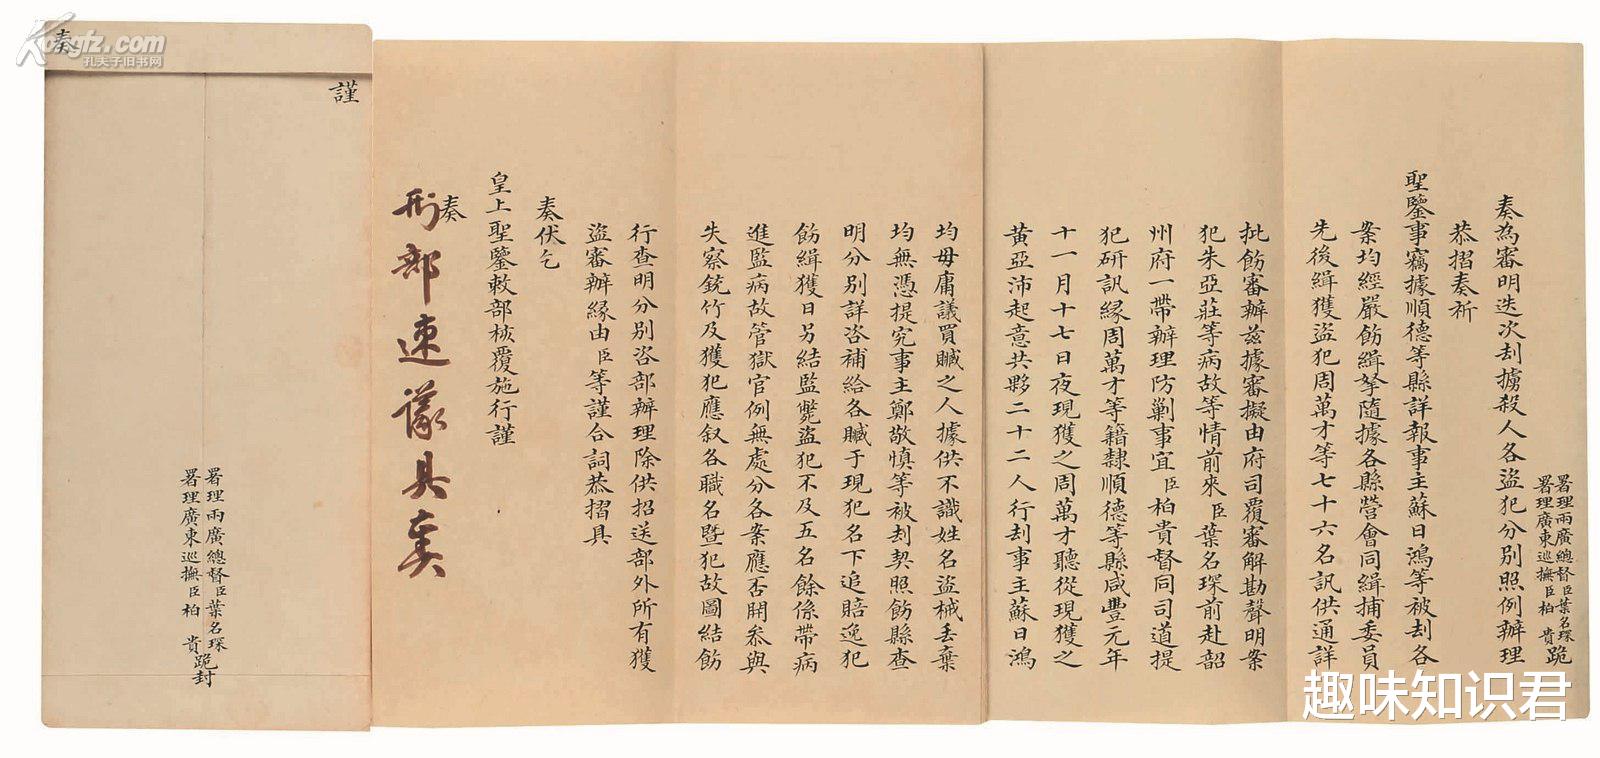 署理兩廣總督臣葉名琛
署理廣東巡撫臣柏 貴
跪
奏為審明迭次刦擄殺人各盜犯分別照例辦理
恭摺奏祈
聖鑒事竊據順德等縣詳報事主蘇日鴻等被刦各
案均經嚴飭緝拏隨據各縣營會同緝捕委員
先後緝獲盜犯周萬才等七十六名訊供通詳
批飭審辦茲據審擬由府司覆審解勘聲明案
犯朱亞莊等病故等情前來臣葉名琛前赴韶
州府一帶辦理防剿事宜臣柏貴督同司道提
犯研訊緣周萬才等籍隸順德等縣咸豐元年
十一月十七日夜現獲之周萬才聽從現獲之
黃亞沛起意共夥二十二人行刦事主蘇日鴻
均毋庸議買贓之人據供不識姓名盜械丟棄
均無憑提究事主鄭敬慎等被刦契照飭縣查
明分別詳咨補給各贓于現犯名下追賠逸犯
飭緝獲日另結監斃盜犯不及五名餘係帶病
進監病故管獄官例無處分各案應否開叅與
失察銃竹及獲犯應叙各職名暨犯故圖結飭
行查明分別咨部辦理除供招送部外所有獲
盜審辦緣由臣等謹合詞恭摺具
奏伏乞
皇上聖鑒敕部核覆施行謹
奏
刑部速議具奏
謹
奏
署理兩廣總督臣葉名琛
署理廣東巡撫臣柏 貴
跪封
Kongfz.com
孔夫子旧书网
趣味知识君